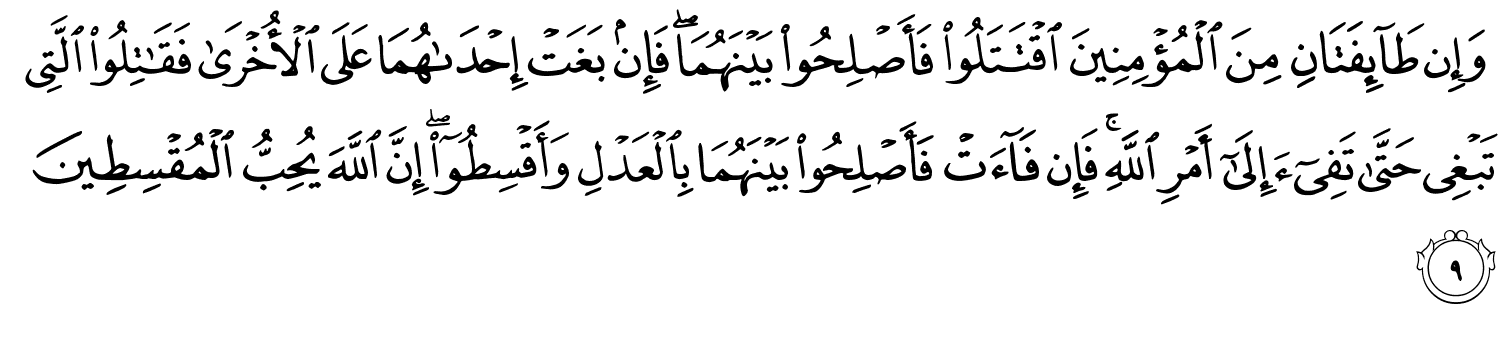 وَإِن طَآئِفَتَانِ مِنَ ٱلْمُؤْمِنِينَ ٱقْتَتَلُوا۟ فَأَصْلِحُوا۟ بَيْنَهُمَا ۖ فَإِنۢ بَغَتْ إِحْدَىٰهُمَا عَلَى ٱلْأُخْرَىٰ فَقَـٰتِلُوا۟ ٱلَّتِى
تَبْغِى حَتَّىٰ تَفِىٓءَ إِلَىٰٓ أَمْرِ ٱللَّهِ ۚ فَإِن فَآءَتْ فَأَصْلِحُوا۟ بَيْنَهُمَا بِٱلْعَدْلِ وَأَقْسِطُوٓا۟ ۖ إِنَّ ٱللَّهَ يُحِبُّ ٱلْمُقْسِطِينَ
٩